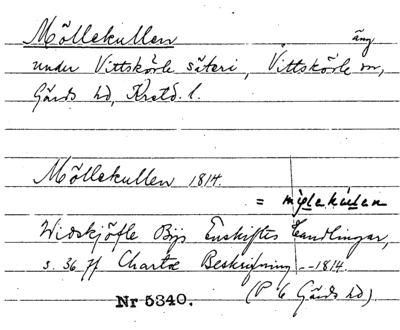 Möllekullen
äng
under Vittsköfle säteri, Vittsköfle sn,
Gärds hd, Krstd. l.
Möllekullen 1814.
= mǫlekulen
Widskjöfle Bys Enskiftes Handlingar,
s. 36 ff Chartæ Beskrifning -- 1814.
(P 6 Gärds hd)
Nr 5340.